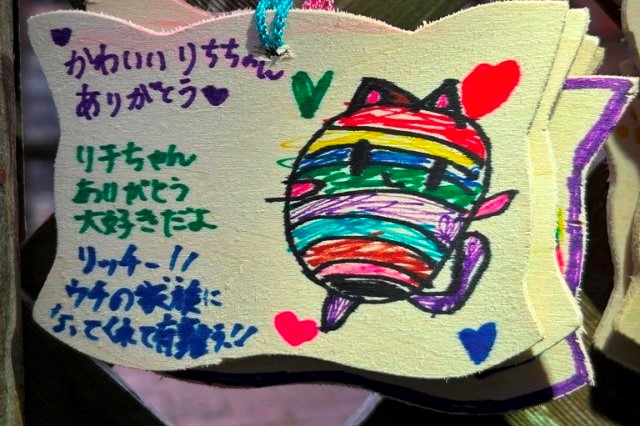 かわいい りちちゃん
ありがとう
りチちゃん
ありがとう
大好きだよ
リッチー!!
ウチの家族に
なってくれて有難う!!